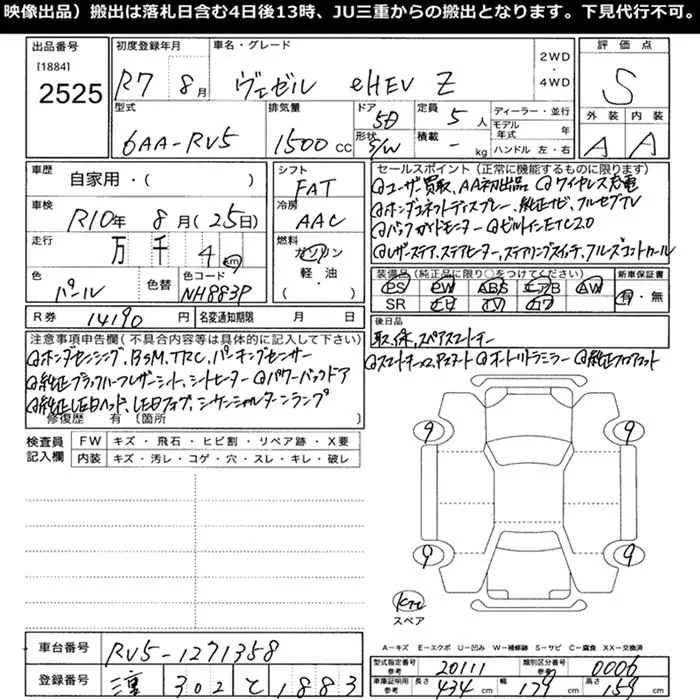 映像出品）搬出は落札日含む4日後13時、JU三重からの搬出となります。下見代行不可。
出品番号
[1884]
2525
初度登録年月
R7 8月
車名・グレード
ヴェゼル eHEV Z
2WD
・
4WD
評価点
S
外装 内装
A A
型式
6AA-RV5
排気量
1500 cc
ドア
5D
形状
S/W
定員
5人
積載
- kg
ディーラー・並行
モデル年式 年
ハンドル 左・右
車歴
自家用・( )
車検
R10年 8月(25日)
走行
万 千 4 km
色
パール
色替
色コード
NH883P
シフト
FAT
冷房
AAC
燃料
ガソリン
軽・油
( )
セールスポイント（正常に機能するものに限ります）
@ユーザー買取、AA初出品 @ワイヤレス充電
@ホンダコネクトディスプレー、純正ナビ、フルセグTV
@バックガイドモニター @ビルトインETC2.0
@レザーステア、ステアヒーター、ステアリングスイッチ、フルオートエアコン
装備品（純正品に限り○をつけてください）
PS PW ABS エアB AW
SR エアコン TV カワ
新車保証書
有・無
R券 14190円
名変通知期限 月 日
後日品
取、保、スペアスマートキー
@スマートキーx2、Pスタート @オートリトラミラー @純正フロアマット
注意事項申告欄(不具合内容等は具体的に記入して下さい)
@ホンダセンシング、BSM、TRC、パーキングセンサー
@純正ブラックハーフレザーシート、シートヒーター @パワーバックドア
@純正LEDヘッド、LEDフォグ、シーケンシャルターンランプ
修復歴 有(箇所
検査員記入欄
FW キズ・飛石・ヒビ割・リペア跡・X要
内装 キズ・汚レ・コゲ・穴・スレ・キレ・破レ
9 9
9 9
スペア
A－キズ E－エクボ U－凹み W－補修跡 S－サビ C－腐食 XX－交換済
車台番号
RV5-1271358
登録番号
302 と 1883
型式指定番号 参考
20111
類別区分番号 参考
0006
車庫証明用 参考
長さ 434 cm
幅 179 cm
高さ 159 cm